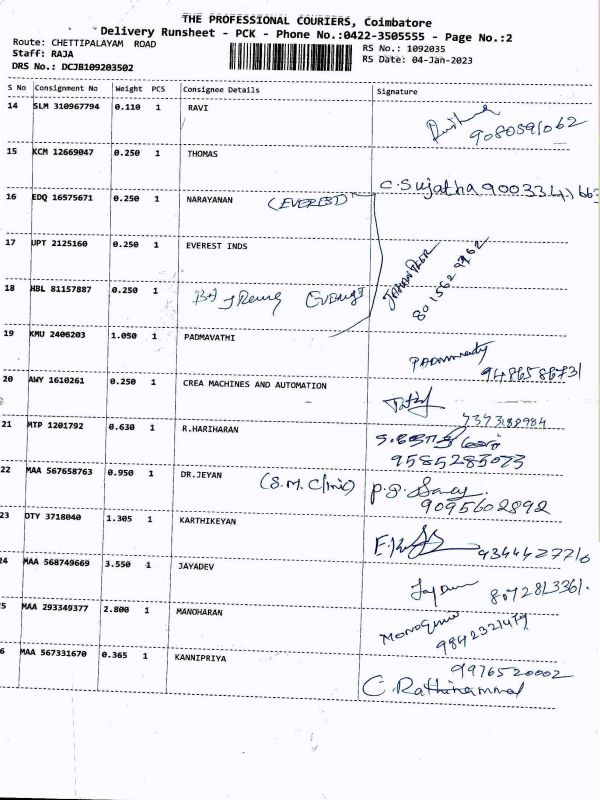 THE PROFESSIONAL COURIERS, Coimbatore
Delivery Runsheet - PCK - Phone No.:0422-3505555 - Page No.:2
Route: CHETTIPALAYAM ROAD
RS No.: 1092035
Staff: RAJA
RS Date: 04-Jan-2023
DRS No.: DCJB109203502
S No Consignment No Weight PCS Consignee Details Signature
14 SLM 310967794 0.110 1 RAVI
9080591062
15 KCM 12669047 0.250 1 THOMAS
C. Sujatha
16 EDQ 16575671 0.250 1 NARAYANAN (EVEREST)
17 UPT 2125160 0.250 1 EVEREST INDS
18 HBL 81157887 0.250 1
19 KMU 2406203 1.050 1 PADMAVATHI
9486586731
20 AWY 1610261 0.250 1 CREA MACHINES AND AUTOMATION
7373188984
21 MTP 1201792 0.630 1 R.HARIHARAN
9585285073
22 MAA 567658763 0.950 1 DR.JEYAN (S.M. Clinic)
9095602892
23 OTY 3718040 1.305 1 KARTHIKEYAN
9344427716
24 MAA 568749669 3.550 1 JAYADEV
8072813361.
5 MAA 293349377 2.800 1 MANOHARAN
9842321479
6 MAA 567331670 0.365 1 KANNIPRIYA
9976520002
C. Rathinammal